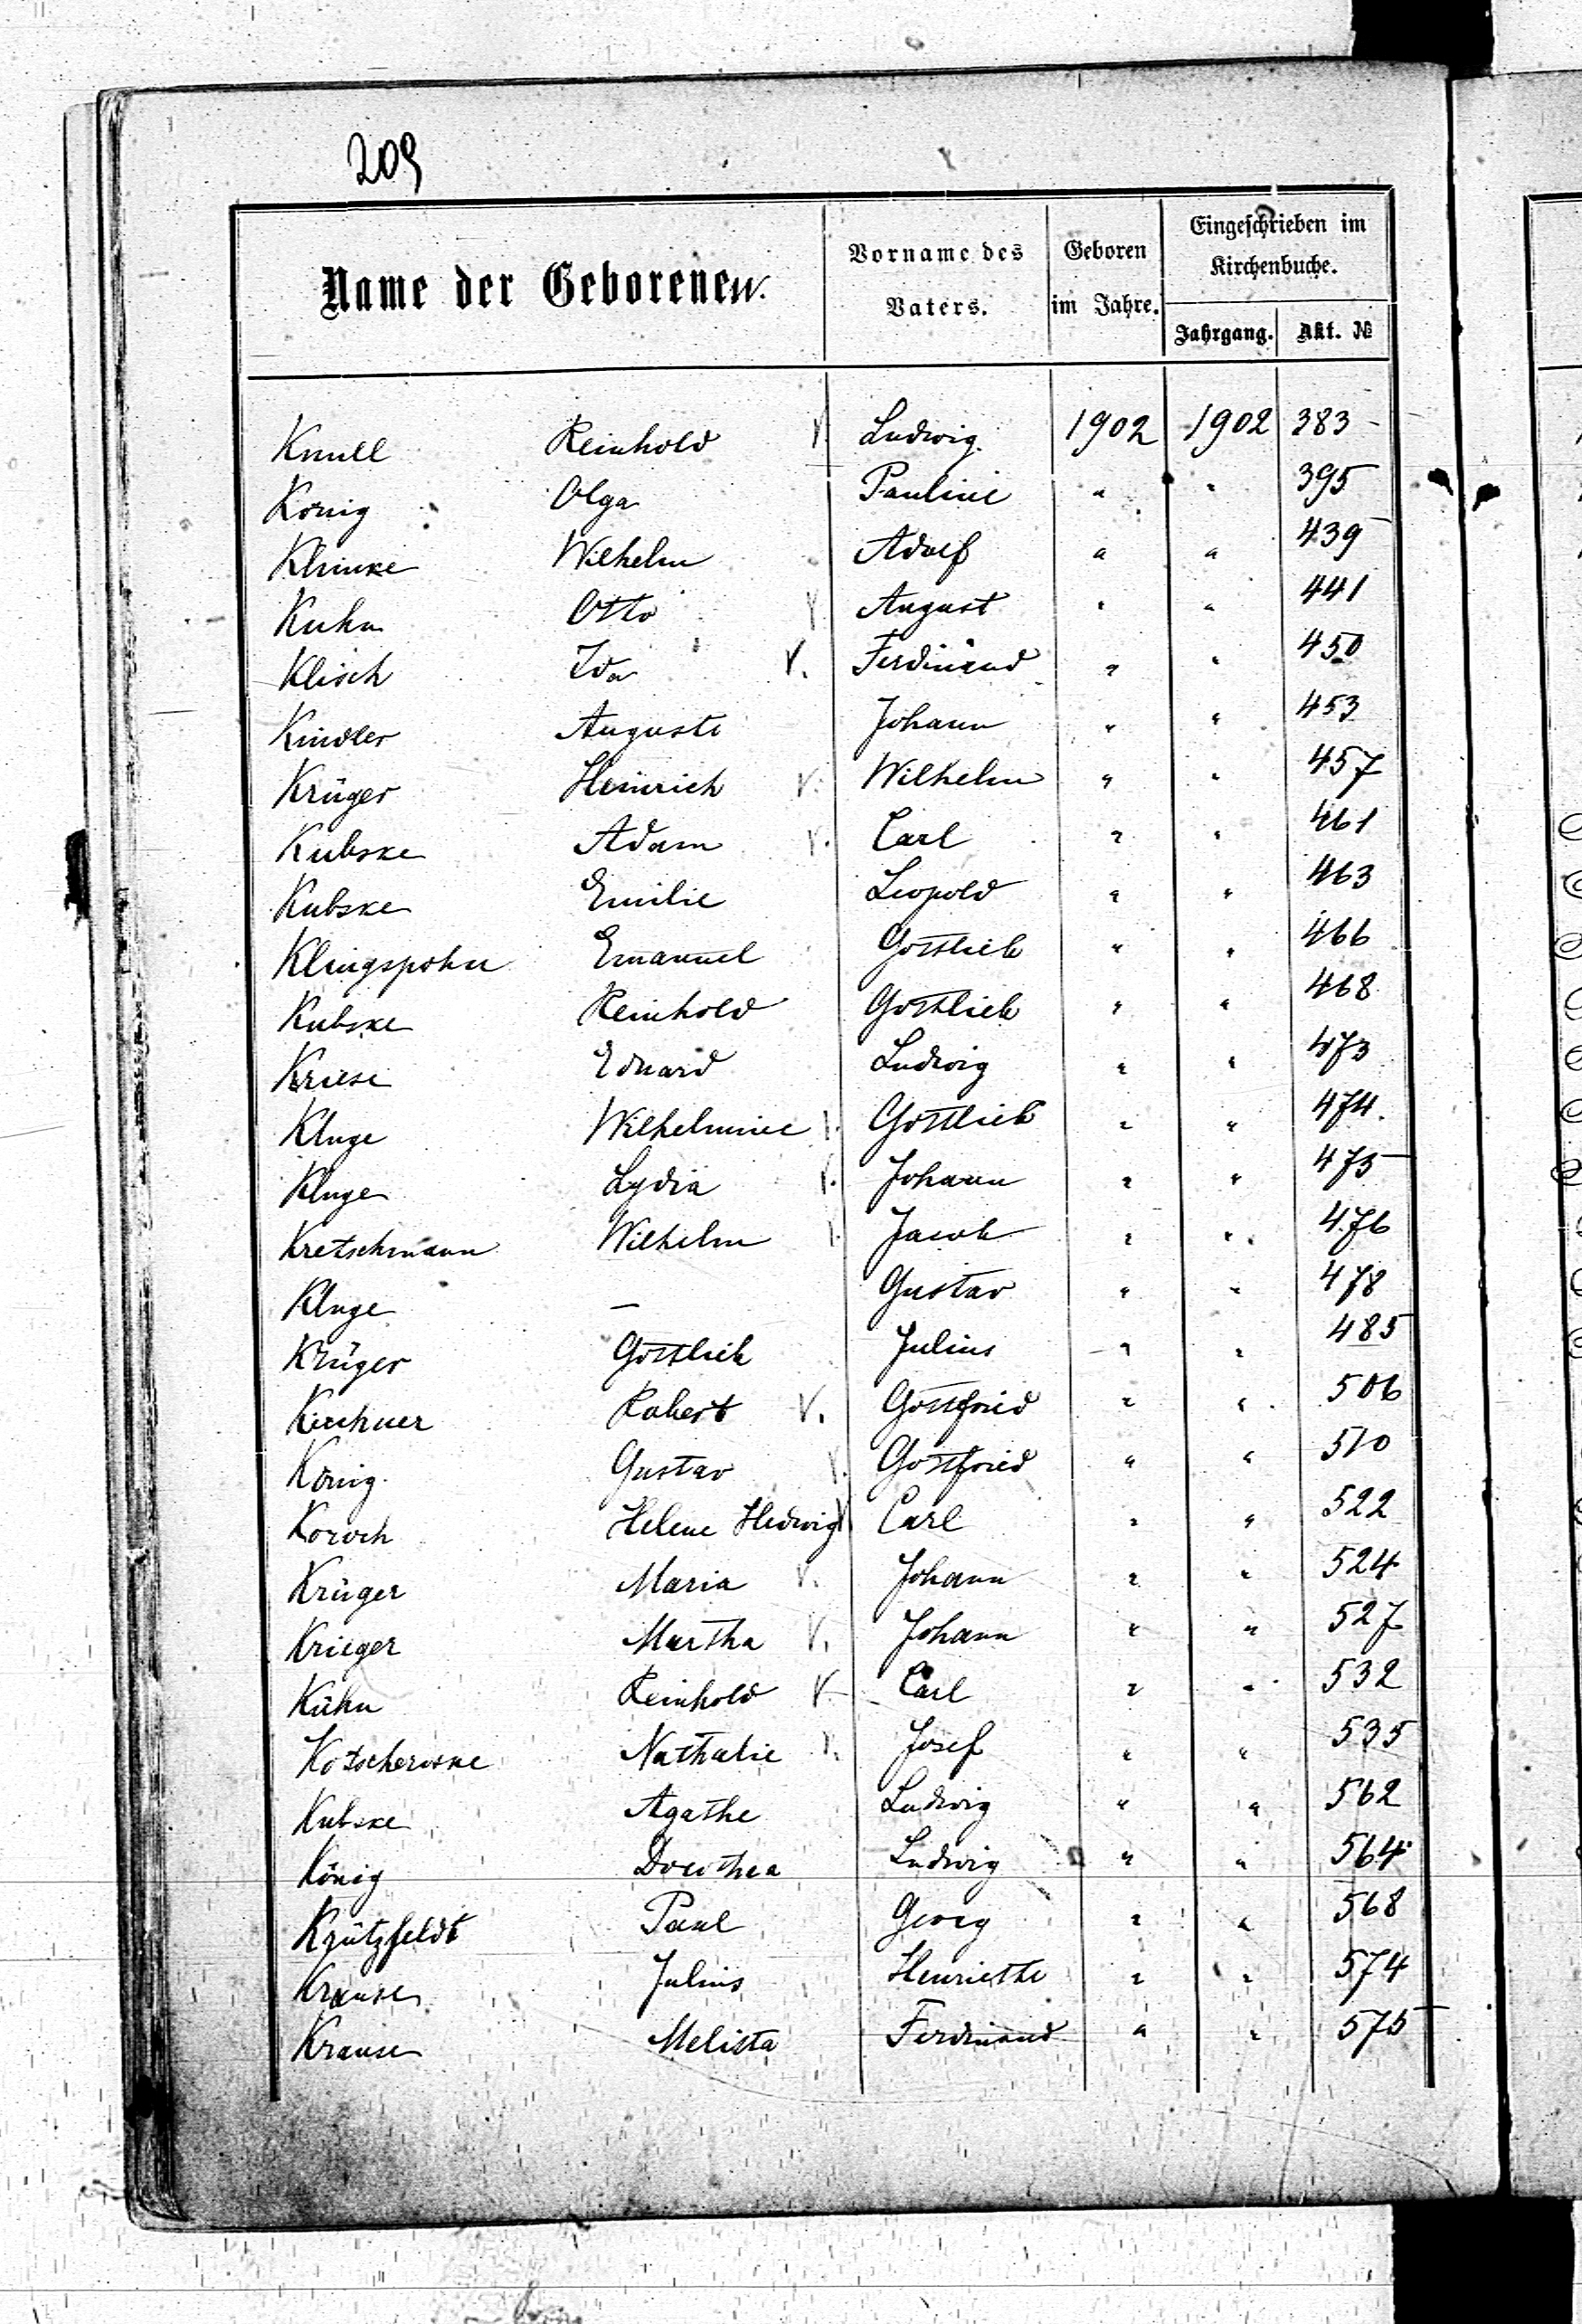 209
Name der Geborenen.
Vorname des Vaters.
Geboren im Jahre.
Eingeschrieben im Kirchenbuche.
Jahrgang. Akt. №
Knull Reinhold V. Ludwig 1902 1902 383
König Olga Pauline " " 395
Klinke Wilhelm Adolf " " 439
Kuhn Otto V August " " 441
Klisch Ida V. Ferdinand " " 450
Kindler Auguste Johann " " 453
Krüger Heinrich V. Wilhelm " " 457
Kubske Adam V. Carl " " 461
Kubske Emilie Leopold " " 463
Klingspohn Emanuel Gottlieb " " 466
Kubske Reinhold Gottlieb " " 468
Kriese Eduard Ludwig " " 473
Kluge Wilhelmine V. Gottlieb " " 474.
Kluge Lydia V. Johann " " 475
Kretschmann Wilhelm V. Jacob " " 476
Kluge — Gustav " " 478
Krüger Gottlieb Julius " " 485
Kirchner Robert V. Gottfried " " 506
König Gustav V. Gottfried " " 510
Koroch Helene Hedwig V Carl " " 522
Krüger Maria V. Johann " " 524
Krieger Martha V. Johann " " 527
Kühn Reinhold V. Carl " " 532
Kotscherske Nathalie V. Josef " " 535
Kubske Agathe Ludwig " " 562
König Dorothea Ludwig " " 564
Krützfeldt Paul Georg " " 568
Krause Julius Henriette " " 574
Krause Melista Ferdinand " " 575